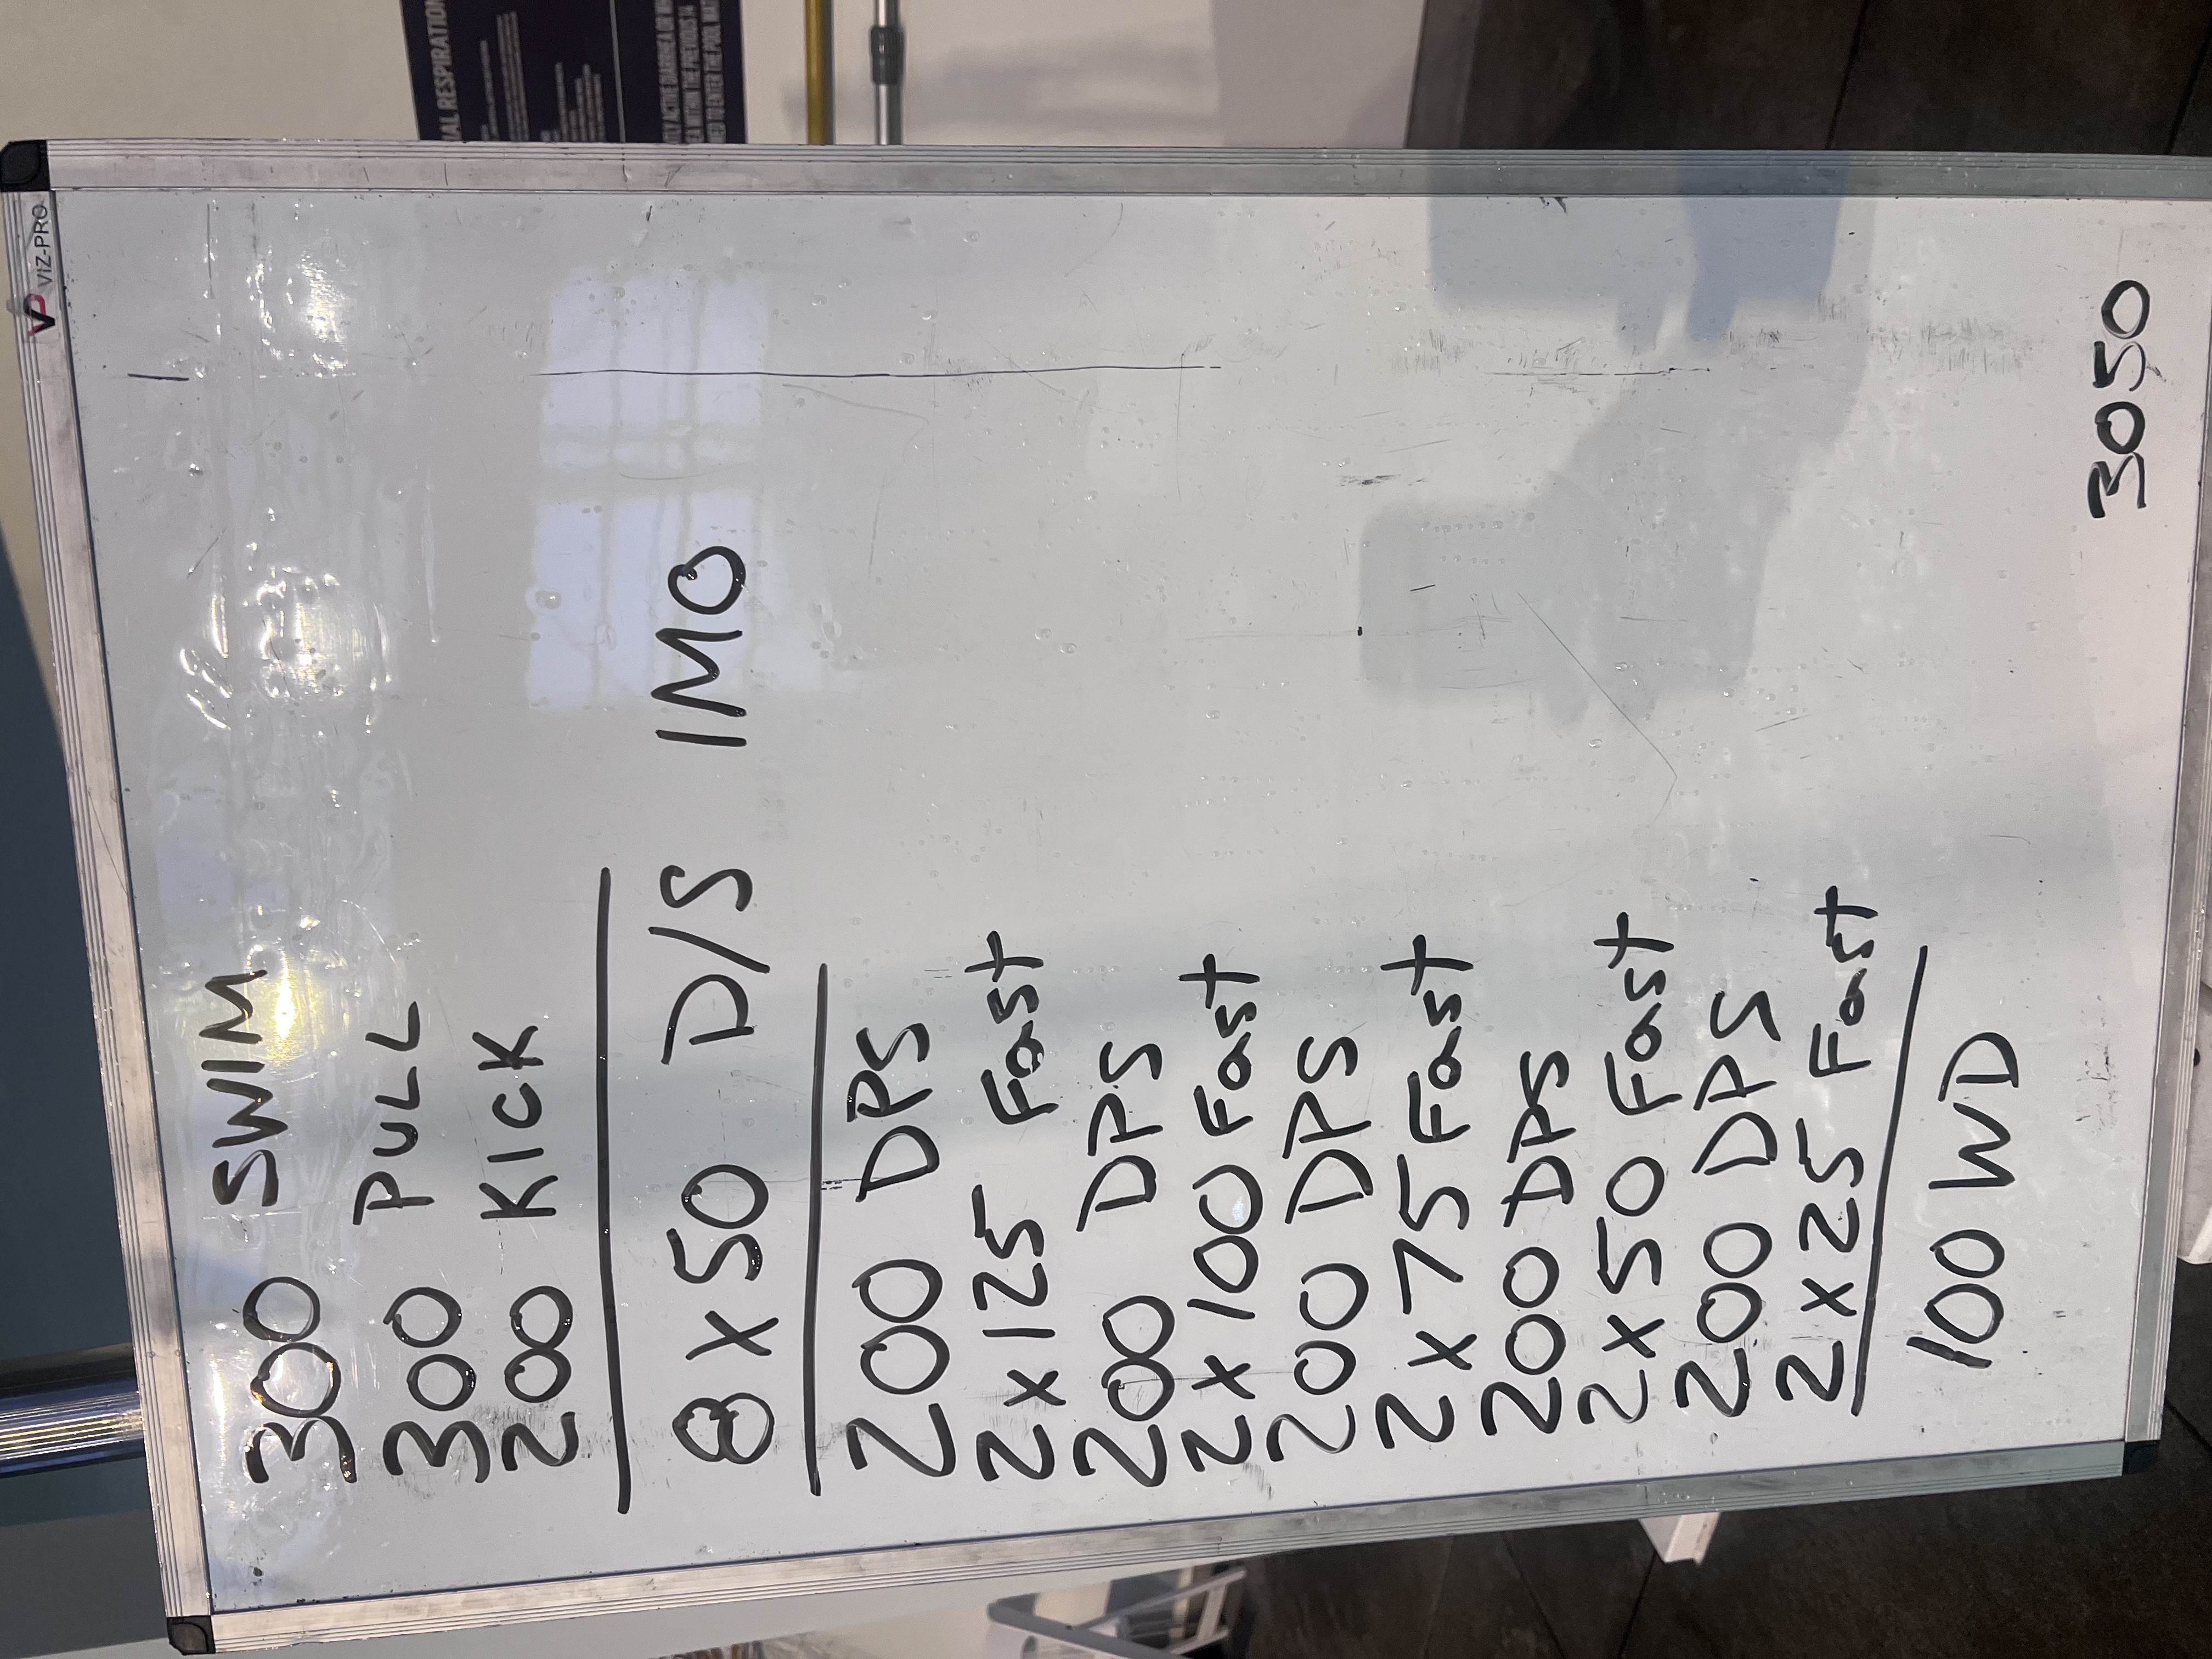 VP VIZ-PRO
300 SWIM
300 PULL
200 KICK
8 x 50 D/S IMO
200 DPS
2 x 125 Fast
200 DPS
2 x 100 Fast
200 DPS
2 x 75 Fast
200 DPS
2 x 50 Fast
200 DPS
2 x 25 Fast
100 WD
3050
RESPIRATION